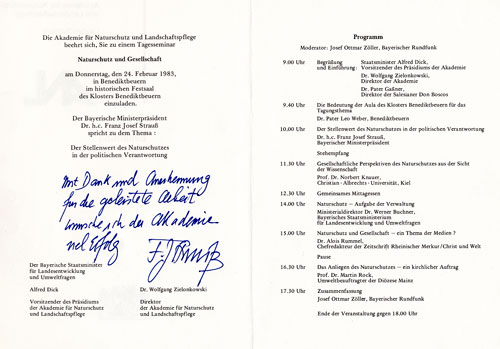 Die Akademie für Naturschutz und Landschaftspflege
beehrt sich, Sie zu einem Tagesseminar
Naturschutz und Gesellschaft
am Donnerstag, den 24. Februar 1983,
in Benediktbeuern
im historischen Festsaal
des Klosters Benediktbeuern
einzuladen.
Der Bayerische Ministerpräsident
Dr. h.c. Franz Josef Strauß
spricht zu dem Thema :
Der Stellenwert des Naturschutzes
in der politischen Verantwortung
Mit Dank und Anerkennung
für die geleistete Arbeit
wünsche ich der Akademie
viel Erfolg
F. J. Strauß
Der Bayerische Staatsminister
für Landesentwicklung
und Umweltfragen
Alfred Dick
Dr. Wolfgang Zielonkowski
Vorsitzender des Präsidiums
der Akademie für Naturschutz
und Landschaftspflege
Direktor
der Akademie für Naturschutz
und Landschaftspflege
Programm
Moderator: Josef Ottmar Zöller, Bayerischer Rundfunk
9.00 Uhr Begrüßung Staatsminister Alfred Dick,
und Einführung: Vorsitzender des Präsidiums der Akademie
Dr. Wolfgang Zielonkowski,
Direktor der Akademie
Dr. Pater Gaßner,
Direktor der Salesianer Don Boscos
9.40 Uhr Die Bedeutung der Aula des Klosters Benediktbeuern für das
Tagungsthema
Dr. Pater Leo Weber, Benediktbeuern
10.00 Uhr Der Stellenwert des Naturschutzes in der politischen Verantwortung
Dr. h.c. Franz Josef Strauß,
Bayerischer Ministerpräsident
Stehempfang
11.30 Uhr Gesellschaftliche Perspektiven des Naturschutzes aus der Sicht
der Wissenschaft
Prof. Dr. Norbert Knauer,
Christian - Albrechts - Universität, Kiel
12.30 Uhr Gemeinsames Mittagessen
14.00 Uhr Naturschutz — Aufgabe der Verwaltung
Ministerialdirektor Dr. Werner Buchner,
Bayerisches Staatsministerium
für Landesentwicklung und Umweltfragen
15.00 Uhr Naturschutz und Gesellschaft — ein Thema der Medien ?
Dr. Alois Rummel,
Chefredakteur der Zeitschrift Rheinischer Merkur / Christ und Welt
Pause
16.30 Uhr Das Anliegen des Naturschutzes — ein kirchlicher Auftrag
Prof. Dr. Martin Rock,
Umweltbeauftragter der Diözese Mainz
17.30 Uhr Zusammenfassung
Josef Ottmar Zöller, Bayerischer Rundfunk
Ende der Veranstaltung gegen 18.00 Uhr